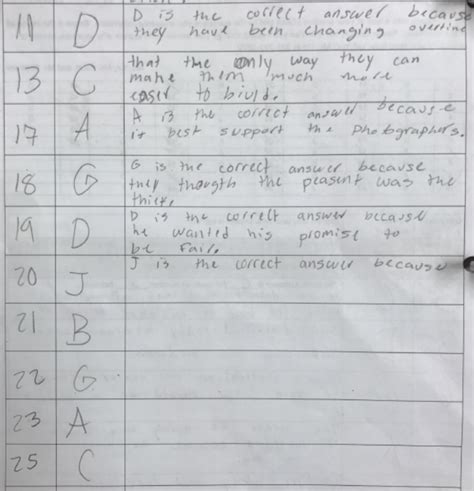 11 D D is the correct answer because
they have been changing overtime
13 C that the only way they can
make them much more
easer to biuld.
17 A A is the correct answer because
it best support the photographers.
18 G G is the correct answer because
they thougth the peasent was the
thief.
19 D D is the correct answer because
he wanted his promise to
be fair.
20 J J is the correct answer because
21 B
22 G
23 A
25 C